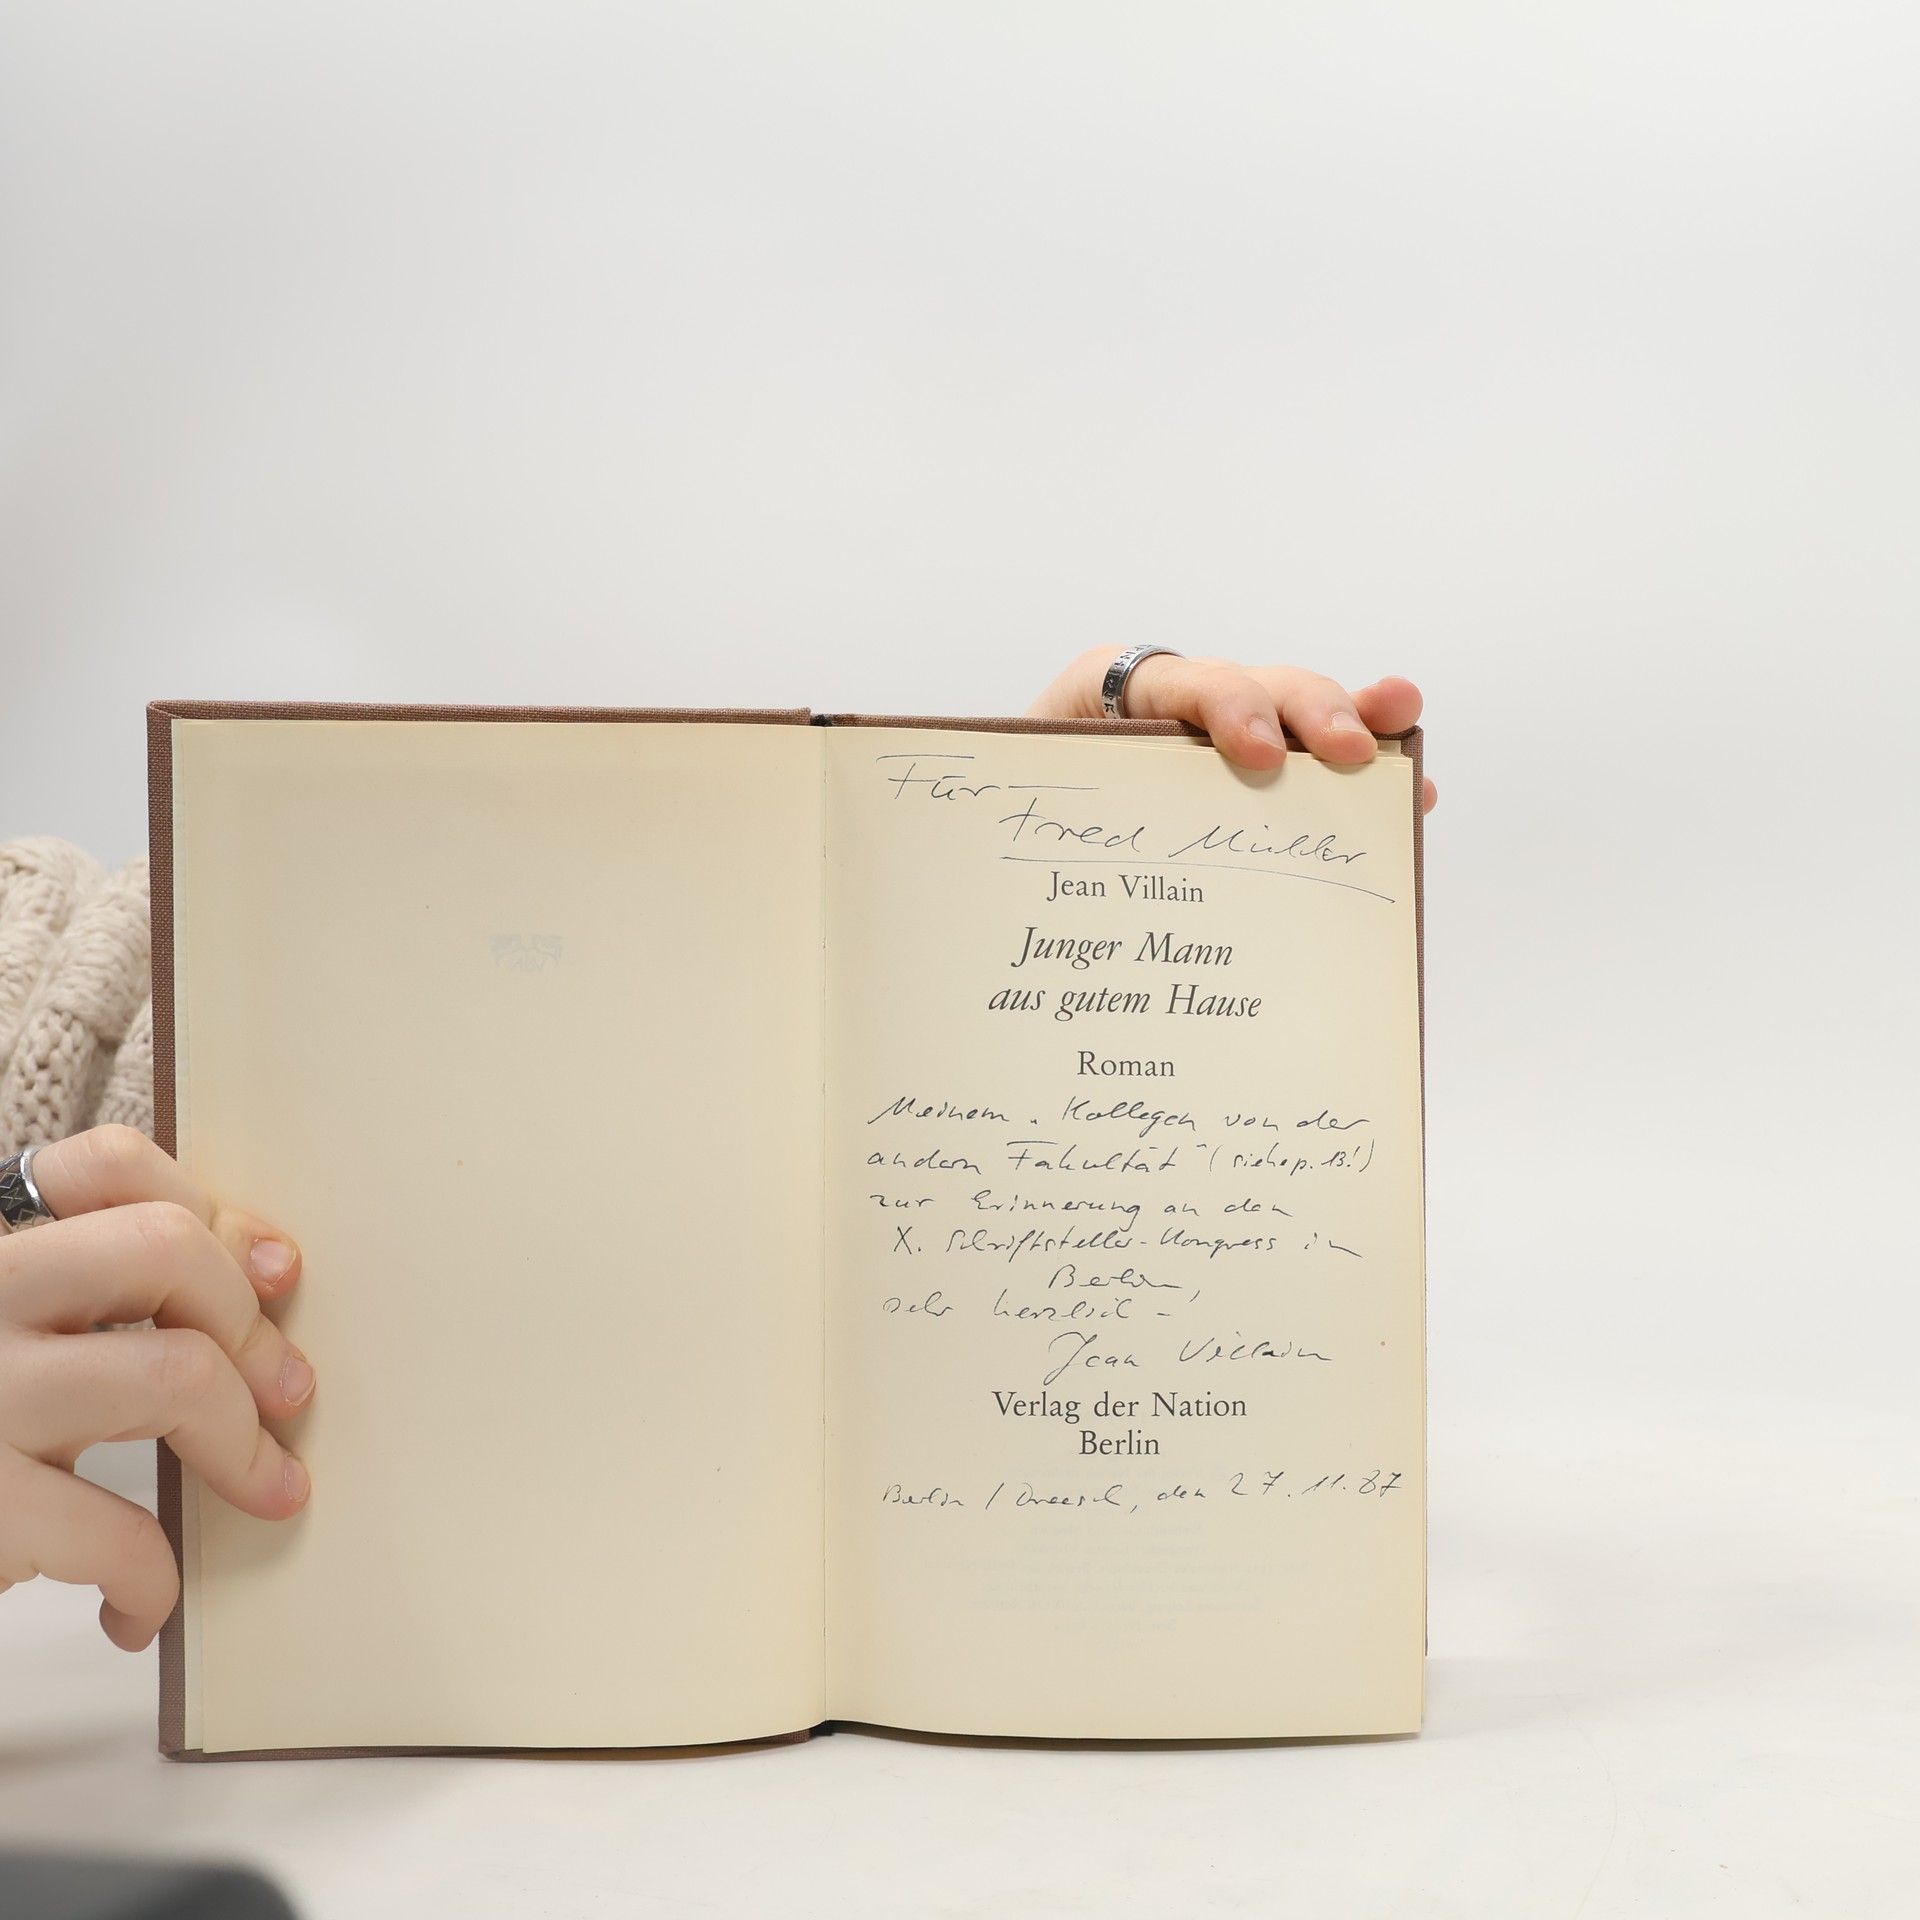 Für
Fred Müller
Jean Villain
Junger Mann
aus gutem Hause
Roman
Meinem „Kollegen von der
andern Fakultät" (siehe p. 13!)
zur Erinnerung an den
X. Schriftsteller-Kongress in
Berlin,
sehr herzlich –
Jean Villain
Verlag der Nation
Berlin
Berlin / Dreesch, den 27.11.87